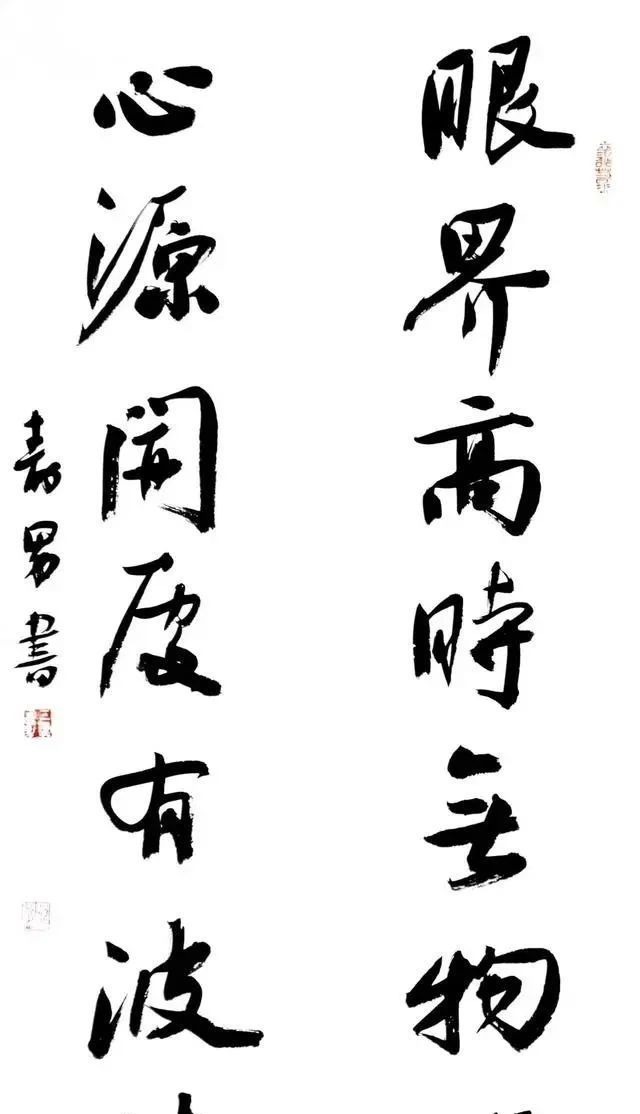 眼界高時無物
心源開處有波
壽男書